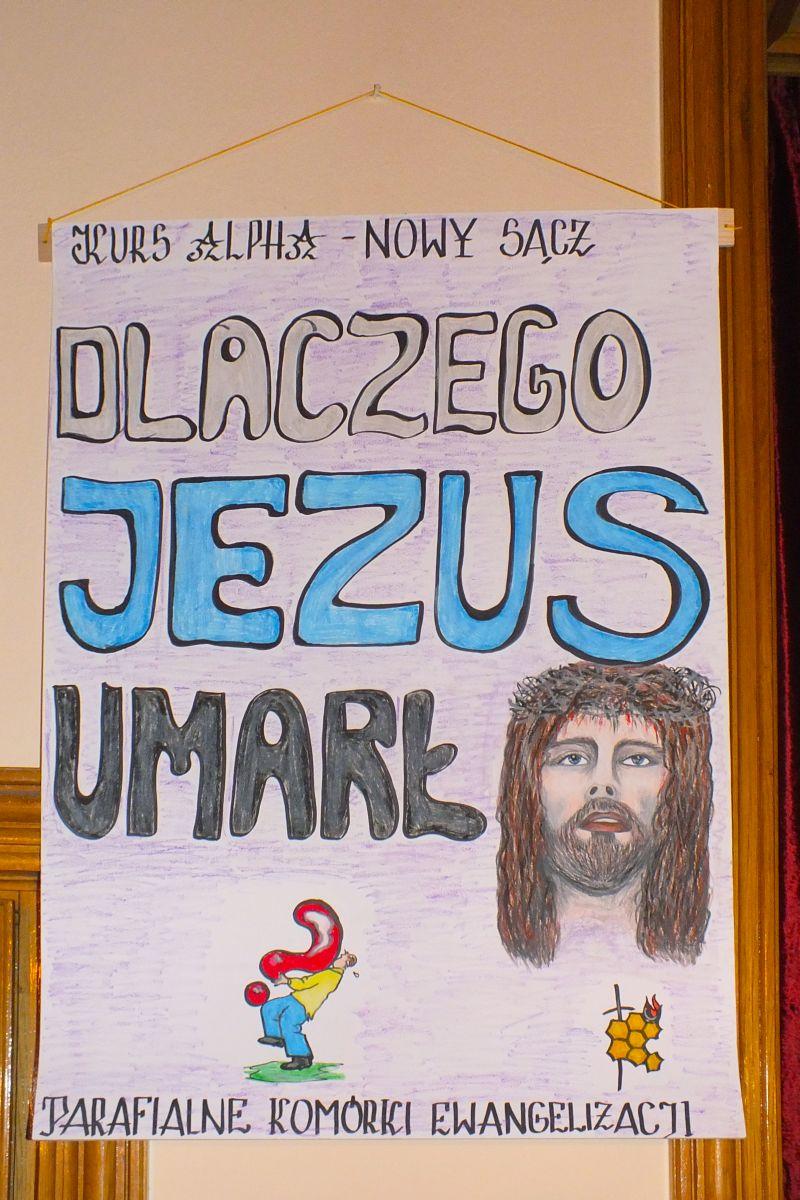 KURS ALPHA - NOWY SĄCZ
DLACZEGO
JEZUS
UMARŁ
PARAFIALNE KOMÓRKI EWANGELIZACJI